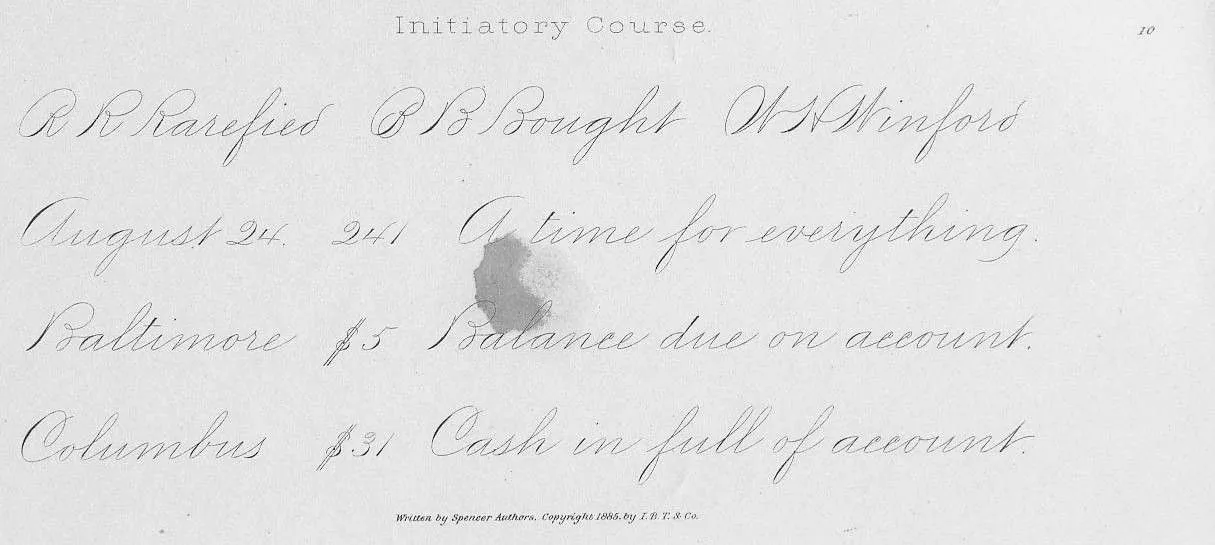 Initiatory Course.
10
R R Rarefied B B Bought W H Winford
August 24. 241 A time for everything.
Baltimore $5 Balance due on account.
Columbus $31 Cash in full of account.
Written by Spencer Authors. Copyright 1885. by I. B. T. & Co.